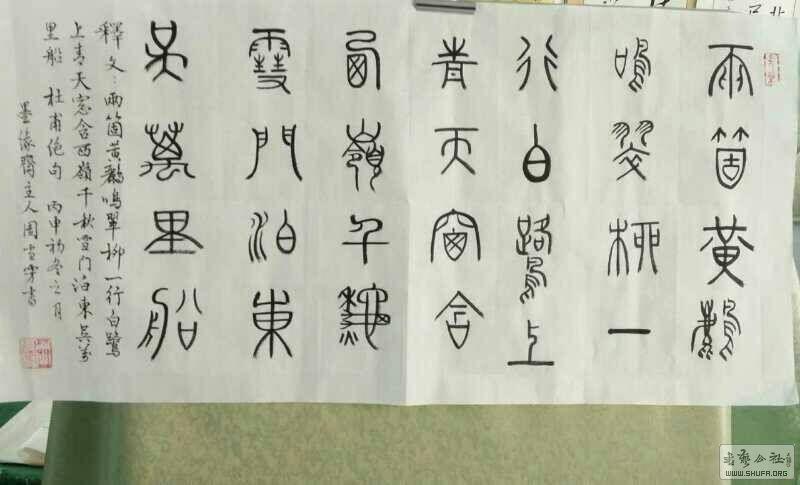 兩箇黄鸝
鳴翠柳一
行白鷺上
青天窗含
西嶺千秋
雪門泊東
吴萬里船
釋文：兩箇黄鸝鳴翠柳一行白鷺
上青天窓含西嶺千秋雪门泊東吴萬
里船 杜甫绝句 丙申初冬之月
墨缘齋主人周雪書
书艺公社
WWW.SHUFA.ORG